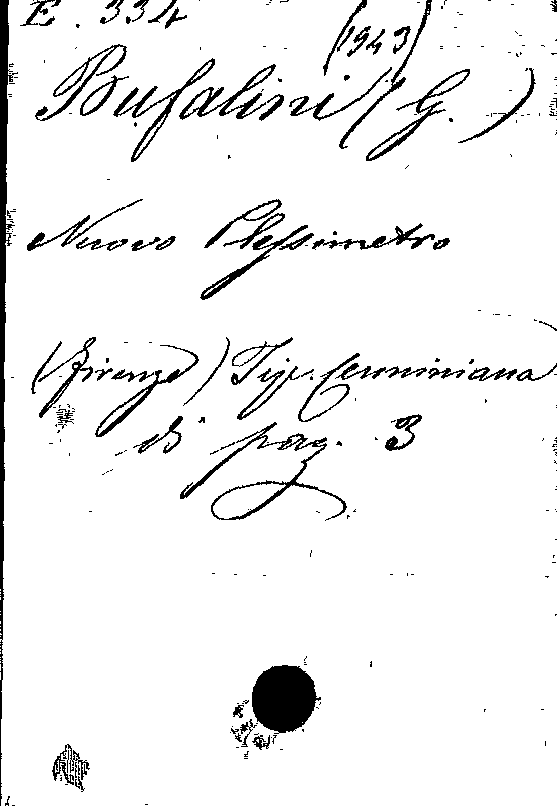 E. 334
(1943)
Bufalini (G.)
Nuovo Plessimetro
(Firenze) Tip. Cenniniana
di pag. 3